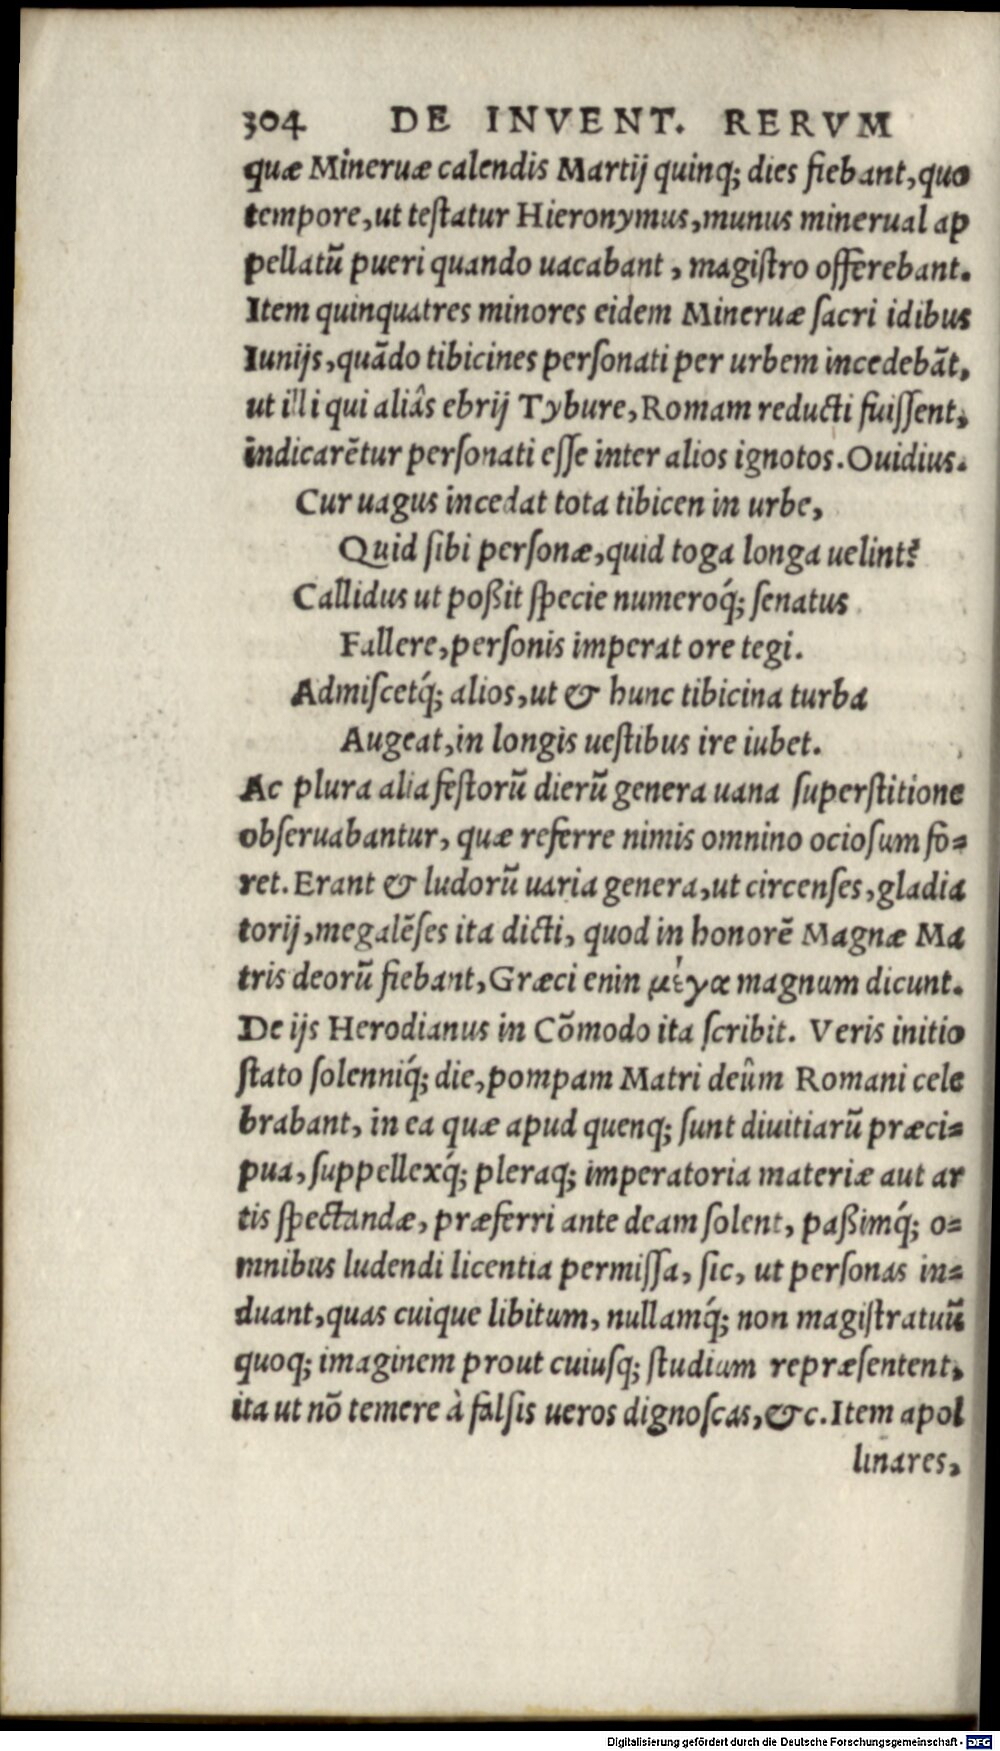 304 DE INVENT. RERVM
quæ Mineruæ calendis Martij quinq; dies fiebant, quo
tempore, ut teſtatur Hieronymus, munus minerual ap
pellatũ pueri quando uacabant, magiſtro offerebant.
Item quinquatres minores eidem Mineruæ ſacri idibus
Iunijs, quãdo tibicines perſonati per urbem incedebãt,
ut illi qui aliâs ebrij Tybure, Romam reducti fuiſſent,
indicarẽtur perſonati eſſe inter alios ignotos. Ouidius.
Cur uagus incedat tota tibicen in urbe,
Quid ſibi perſonæ, quid toga longa uelint?
Callidus ut poßit ſpecie numeroq́; ſenatus
Fallere, perſonis imperat ore tegi.
Admiſcetq́; alios, ut & hunc tibicina turba
Augeat, in longis ueſtibus ire iubet.
Ac plura alia feſtorũ dierũ genera uana ſuperſtitione
obſeruabantur, quæ referre nimis omnino ocioſum fo=
ret. Erant & ludorũ uaria genera, ut circenſes, gladia
torij, megalẽſes ita dicti, quod in honorẽ Magnæ Ma
tris deorũ fiebant, Græci enin μέγα magnum dicunt.
De ijs Herodianus in Cõmodo ita ſcribit. Veris initio
ſtato ſolenniq́; die, pompam Matri deûm Romani cele
brabant, in ea quæ apud quenq; ſunt diuitiarũ præci=
pua, ſuppellexq́; pleraq; imperatoria materiæ aut ar
tis ſpectandæ, præferri ante deam ſolent, paßimq́; o=
mnibus ludendi licentia permiſſa, ſic, ut perſonas in=
duant, quas cuique libitum, nullamq́; non magiſtratuũ
quoq; imaginem prout cuiuſq; ſtudium repræſentent,
ita ut nõ temere à falſis ueros dignoſcas, &c. Item apol
linares,
Digitalisierung gefördert durch die Deutsche Forschungsgemeinschaft - DFG